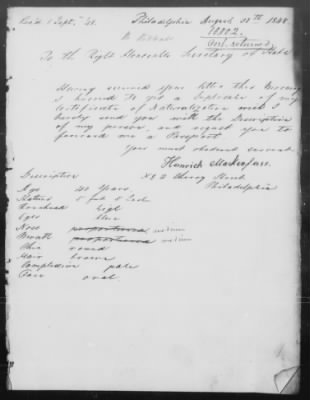 Rec'd 1 Sept. 48.
Philadelphia August 30th 1848.
10002.
Cert. returned.
To the Right Honorable Secretary of State
Having received your letter this Morning
I hasened to get a Duplicate of my
Certificate of Naturalization which I
hereby send you with the Description
of my person, and request you to
forward me a Passport.
Your most obedient servant
Henrich
Cherry Street
Philadelphia
Description
Age 40 Years.
Stature 5 feet 5 Inch
Forehead high
Eyes blue
Nose proportioned medium
Mouth proportioned medium
Chin round
Hair brown
Complexion pale
Face oval